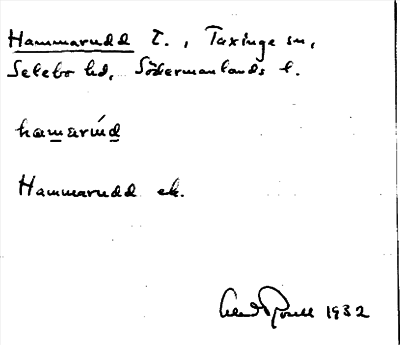 Hammarudd T., Taxinge sn,
Selebo hd, Södermanlands l.
hamarúd
Hammarudd ek.
1932